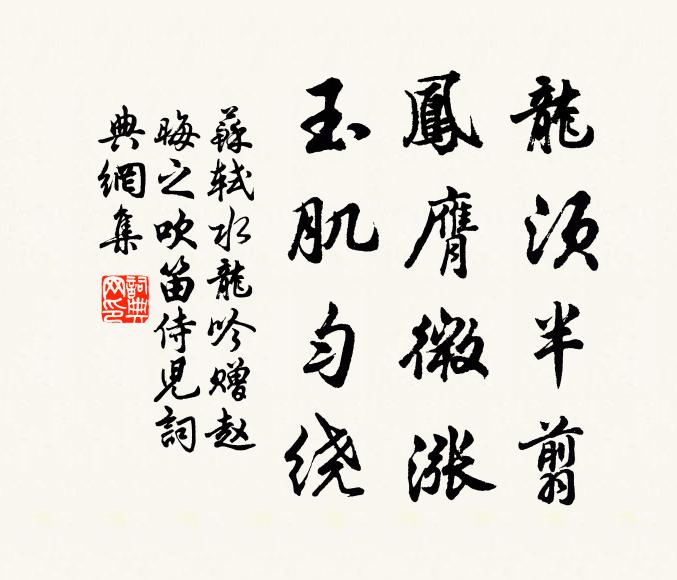 龍須半翦
鳳膺微漲
玉肌勻绕
蘇軾水龍吟赠赵
晦之吹笛侍兒詞
典網集
詞典
网印